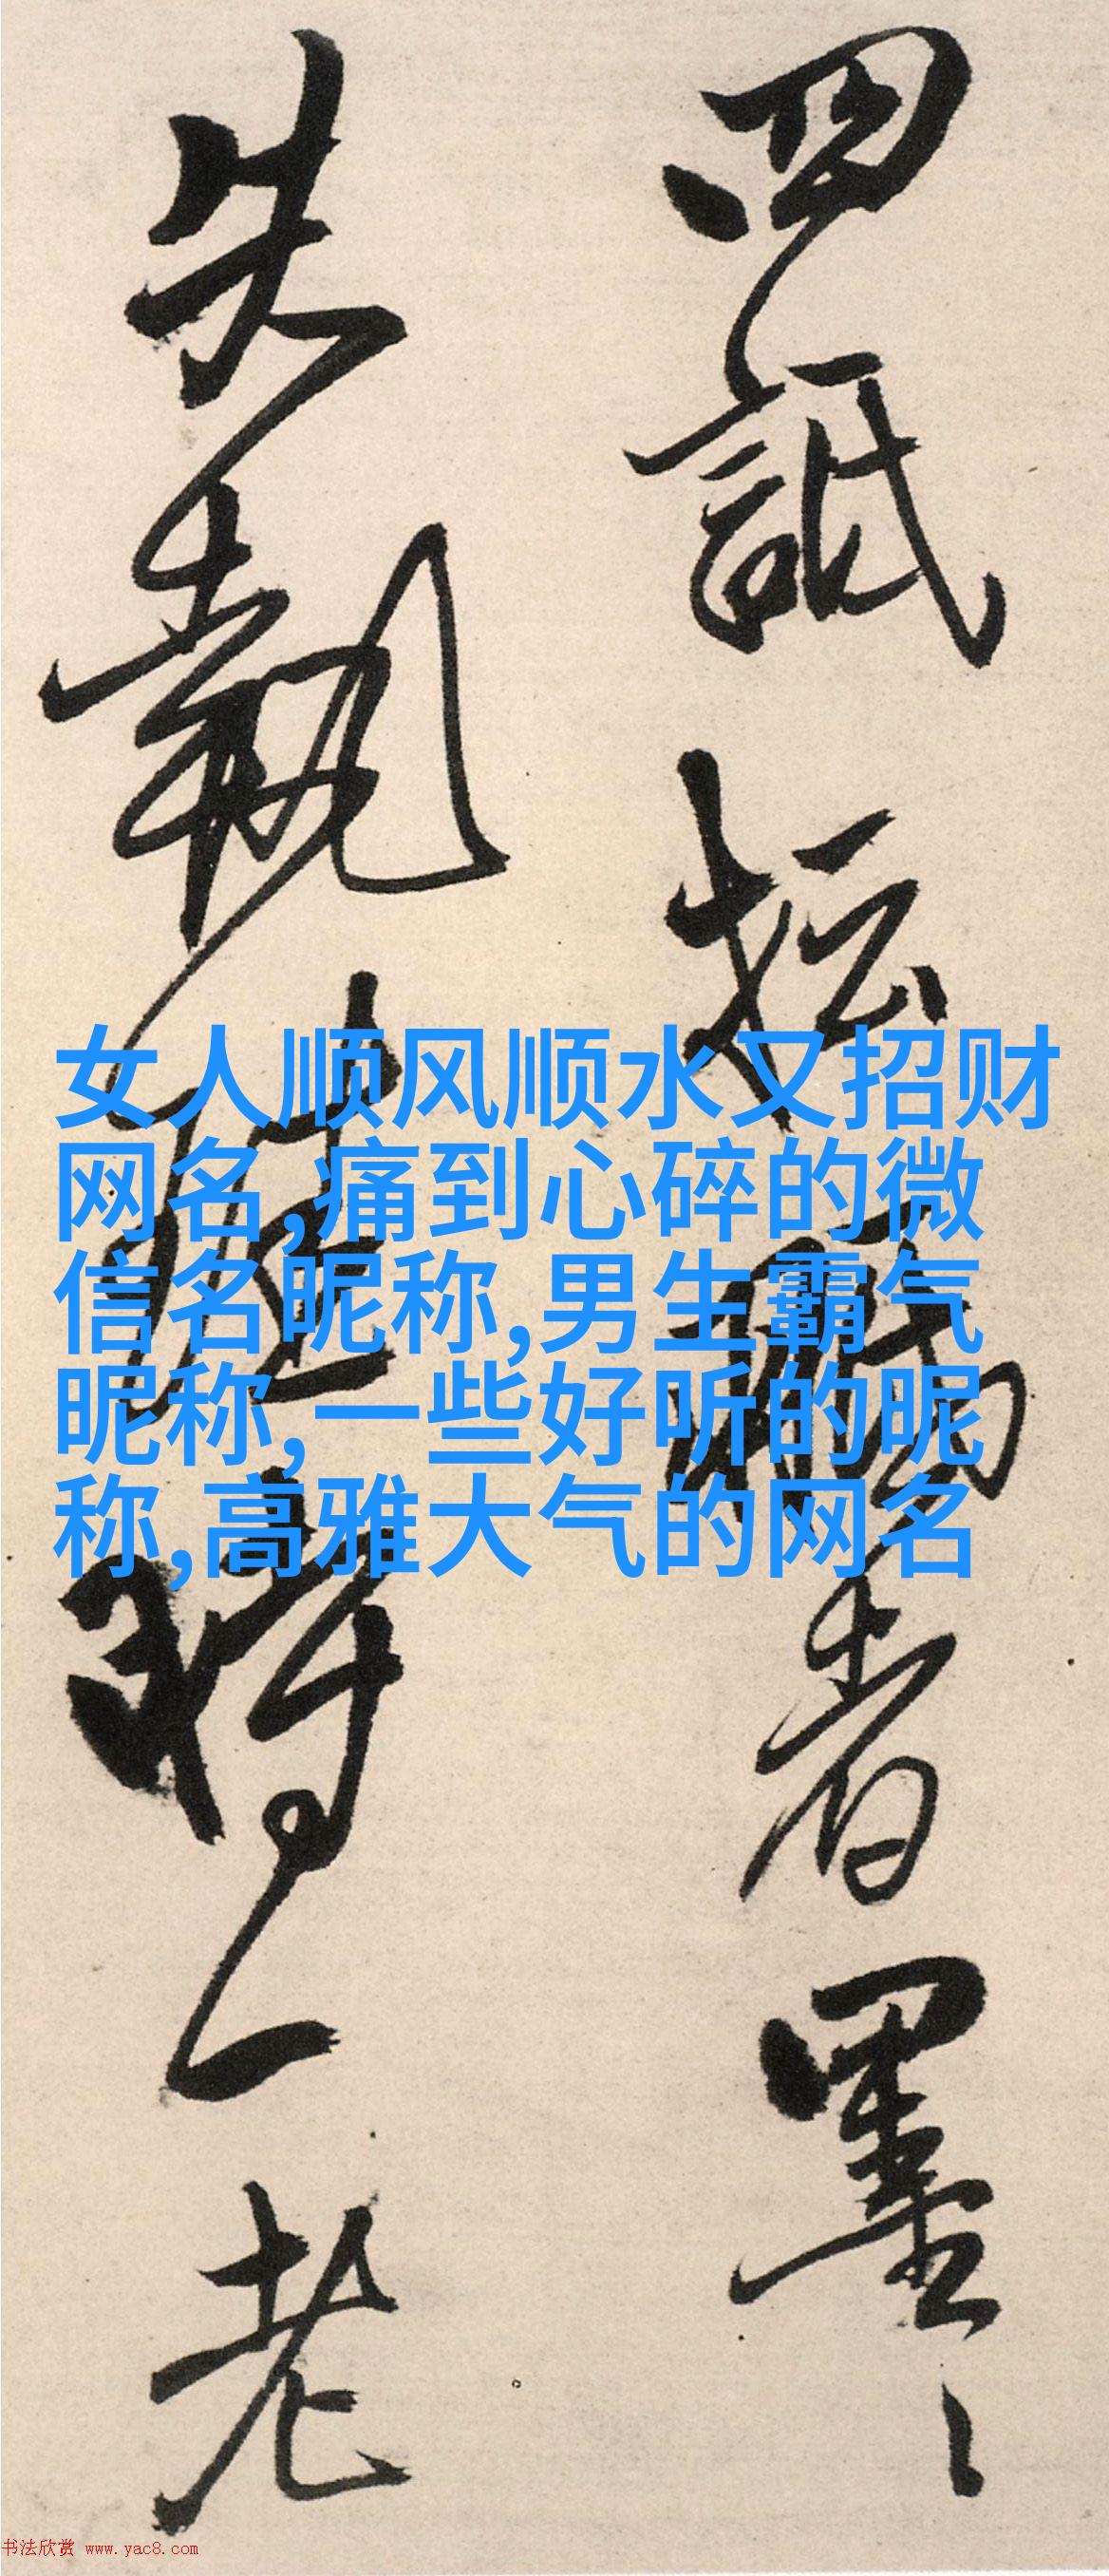 四詆坛
者墨
失執
時一老
女人顺风顺水又招财
网名,痛到心碎的微
信名昵称,男生霸气
昵称,一些好听的昵
称,高雅大气的网名
书法欣赏 www.yac8.com